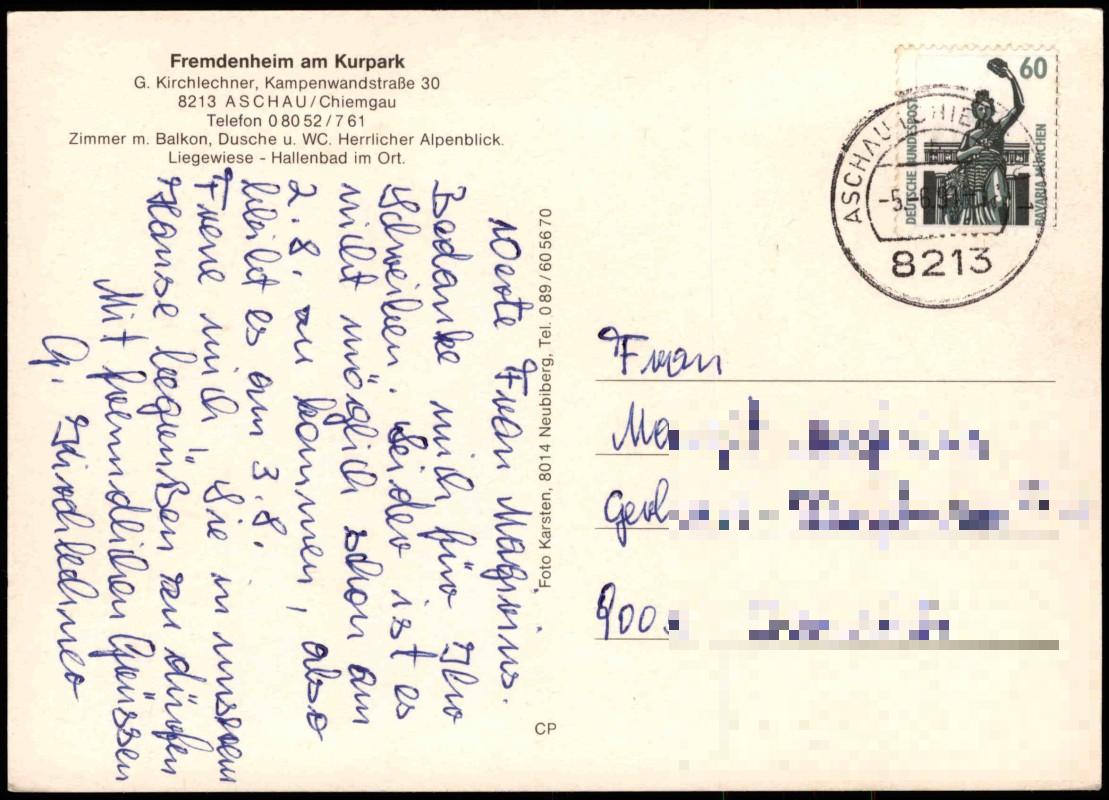 Fremdenheim am Kurpark
G. Kirchlechner, Kampenwandstraße 30
8213 ASCHAU/Chiemgau
Telefon 0 80 52 / 7 61
Zimmer m. Balkon, Dusche u. WC. Herrlicher Alpenblick.
Liegewiese - Hallenbad im Ort.
Werte Frau Magirius.
Bedanke mich für Ihr
Schreiben. Leider ist es
nicht möglich schon am
2.8. zu kommen, also
bleibt es am 3.8.
Freue mich, Sie in unserem
Hause begrüßen zu dürfen
Mit freundlichen Grüssen
G. Kirchlechner
Foto Karsten, 8014 Neubiberg, Tel. 0 89 / 60 56 70
CP
60
DEUTSCHE BUNDESPOST
BAVARIA MÜNCHEN
ASCHAU CHIE
-5.-6.91
8213
Frau
Ma
Gerh
900